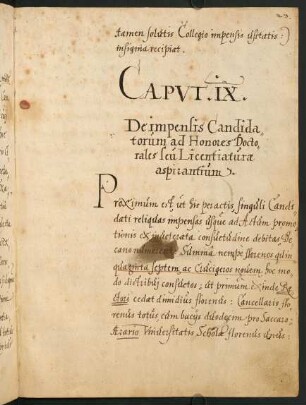 tamen solutis Collegio impensis usitatis
insignia recipiat.
CAPVT. IX.
De impensis Candida
torum ad Honores Docto
rales seu Licentiaturæ
aspirantium
PRoximum est ut hic peractis singuli Candi
dati reliquas impensas usque ad Actum promo
tionis ex inveterata consuetudine debitas De
cano numerent. Summa nempe florenos quin
quaginta septem, ac Crucigeros novem hoc mo
do distribui consuetos; ut primum exinde Re
ctori cedat dimidius florenus: Cancellario flo
renus totus cum bacijs duodecim: pro Saccario
Ærario Universitatis Scholæ florenus